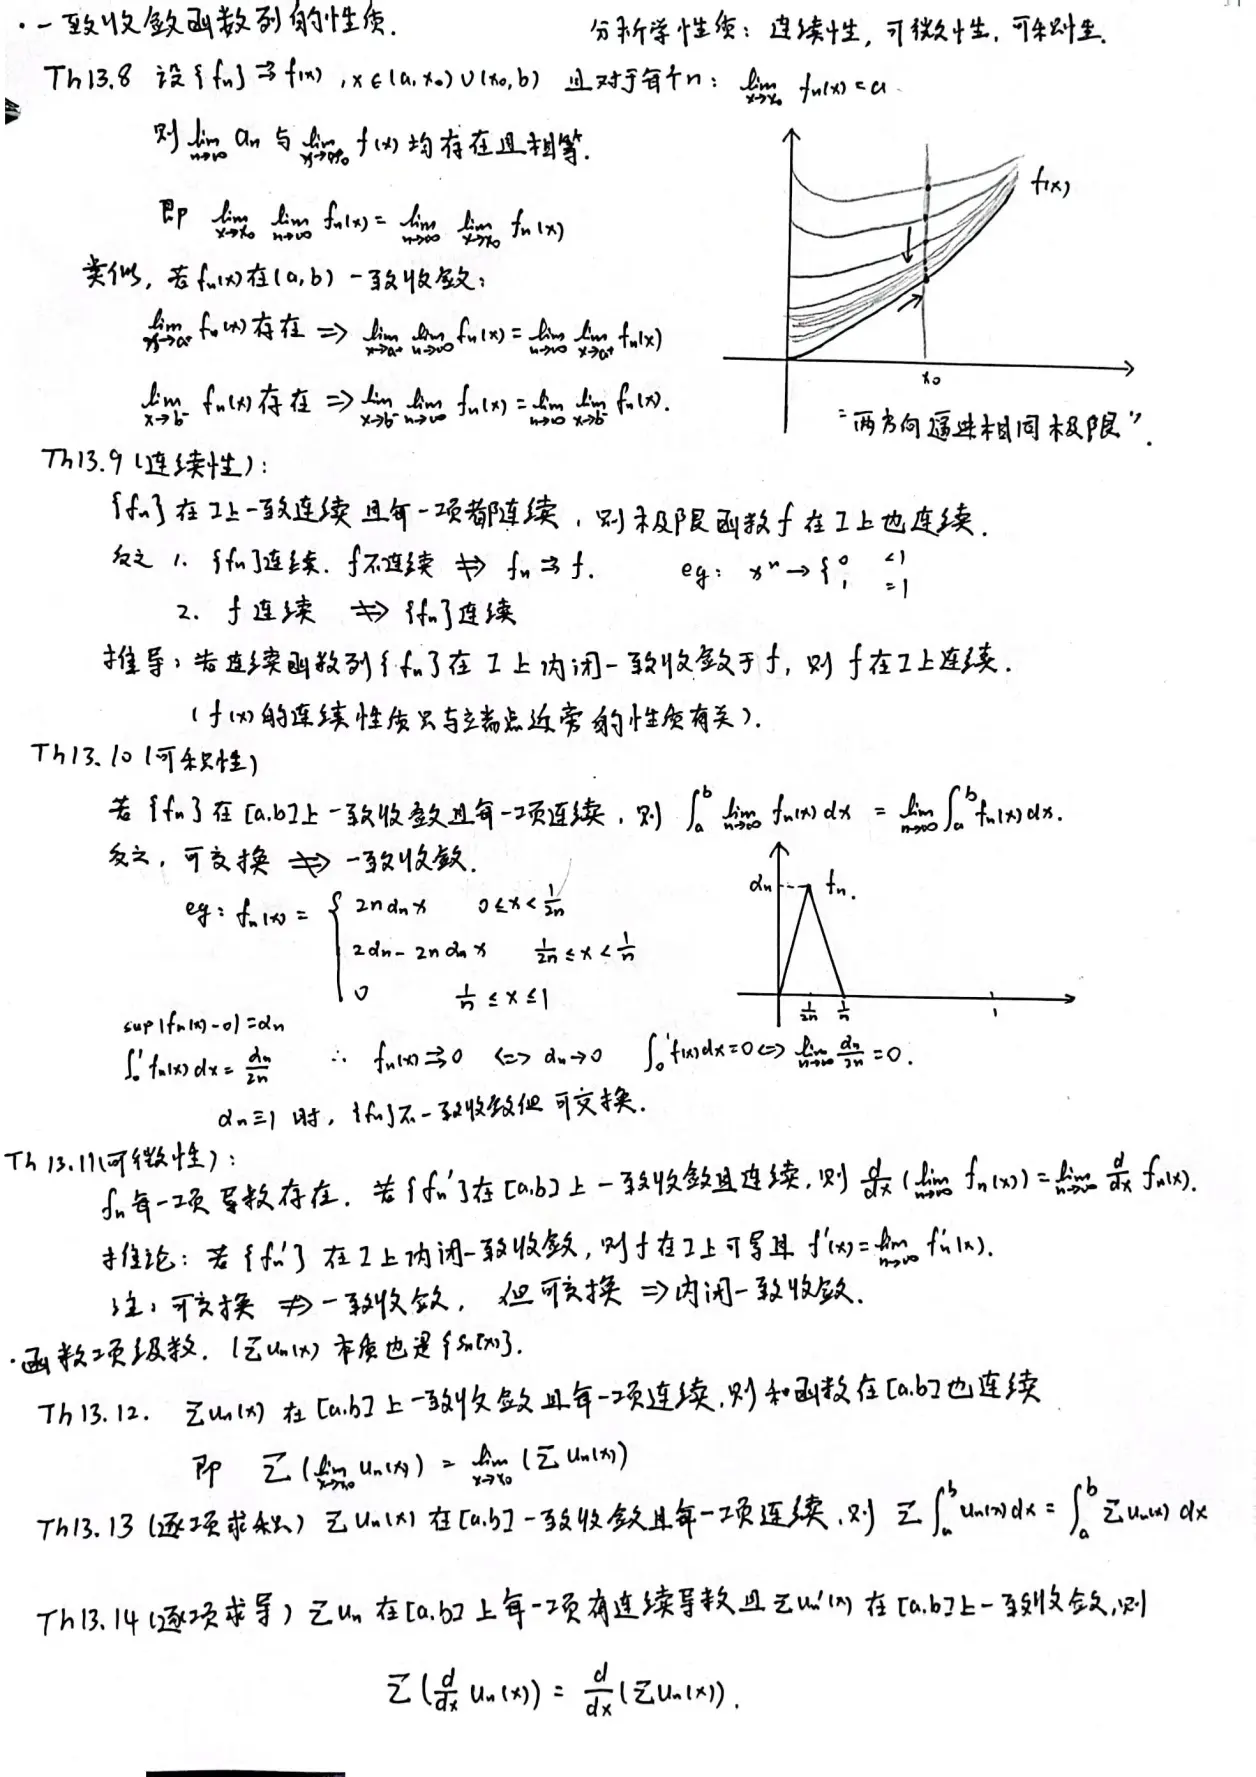 ·一致收敛函数列的性质. 分析学性质：连续性，可微性，可积性.
Th13.8 设{fn}⇉f(x), x∈(a,x₀)∪(x₀,b) 且对于每个n： lim_{x→x₀} fn(x)=a
则 lim_{n→∞} an 与 lim_{x→x₀} f(x) 均存在且相等.
f(x)
即 lim_{x→x₀} lim_{n→∞} fn(x) = lim_{n→∞} lim_{x→x₀} fn(x)
类似，若fn(x)在(a,b)一致收敛：
lim_{x→a⁺} fn(x)存在 ⇒ lim_{x→a⁺} lim_{n→∞} fn(x) = lim_{n→∞} lim_{x→a⁺} fn(x)
x₀
lim_{x→b⁻} fn(x)存在 ⇒ lim_{x→b⁻} lim_{n→∞} fn(x) = lim_{n→∞} lim_{x→b⁻} fn(x).
"两方向逼进相同极限".
Th13.9 (连续性)：
{fn}在I上一致连续且每一项都连续，则极限函数f在I上也连续.
反之 1. {fn}连续. f不连续 ⇏ fn⇉f. eg： xⁿ→{0 <1
1 =1
2. f连续 ⇏ {fn}连续
推导：若连续函数列{fn}在I上内闭一致收敛于f，则f在I上连续.
(f(x)的连续性质只与端点近旁的性质有关).
Th13.10 (可积性)
若{fn}在[a.b]上一致收敛且每一项连续，则 ∫_a^b lim_{n→∞} fn(x)dx = lim_{n→∞} ∫_a^b fn(x)dx.
反之，可交换 ⇏ 一致收敛.
αn fn.
eg：fn(x) = { 2nαnx 0≤x<1/2n
2αn-2nαnx 1/2n≤x<1/n
0 1/n≤x≤1
1/2n 1/n 1
sup|fn(x)-0|=αn
∫₀¹fn(x)dx=αn/2n ∴ fn(x)⇉0 ⇔ αn→0 ∫₀¹f(x)dx=0⇔ lim_{n→∞} αn/2n=0.
αn≡1时，{fn}不一致收敛但可交换.
Th13.11(可微性)：
fn每一项导数存在. 若{fn'}在[a.b]上一致收敛且连续，则 d/dx(lim_{n→∞} fn(x))=lim_{n→∞} d/dx fn(x).
推论：若{fn'}在I上内闭一致收敛，则f在I上可导且f'(x)=lim_{n→∞} fn'(x).
注：可交换 ⇏ 一致收敛，但可交换 ⇒内闭一致收敛.
·函数项级数. (Σun(x) 本质也是{Sn(x)}.
Th13.12. Σun(x)在[a.b]上一致收敛且每一项连续，则和函数在[a.b]也连续
即 Σ(lim_{x→x₀} un(x)) = lim_{x→x₀} (Σun(x))
Th13.13 (逐项求积) Σun(x)在[a.b]一致收敛且每一项连续，则 Σ∫_a^b un(x)dx = ∫_a^b Σun(x)dx
Th13.14 (逐项求导) Σun在[a.b]上每一项有连续导数且Σun'(x)在[a.b]上一致收敛，则
Σ(d/dx un(x)) = d/dx(Σun(x)).